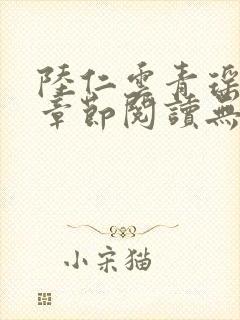 陸仁雲青瑤
章節閱讀無
小宋猫